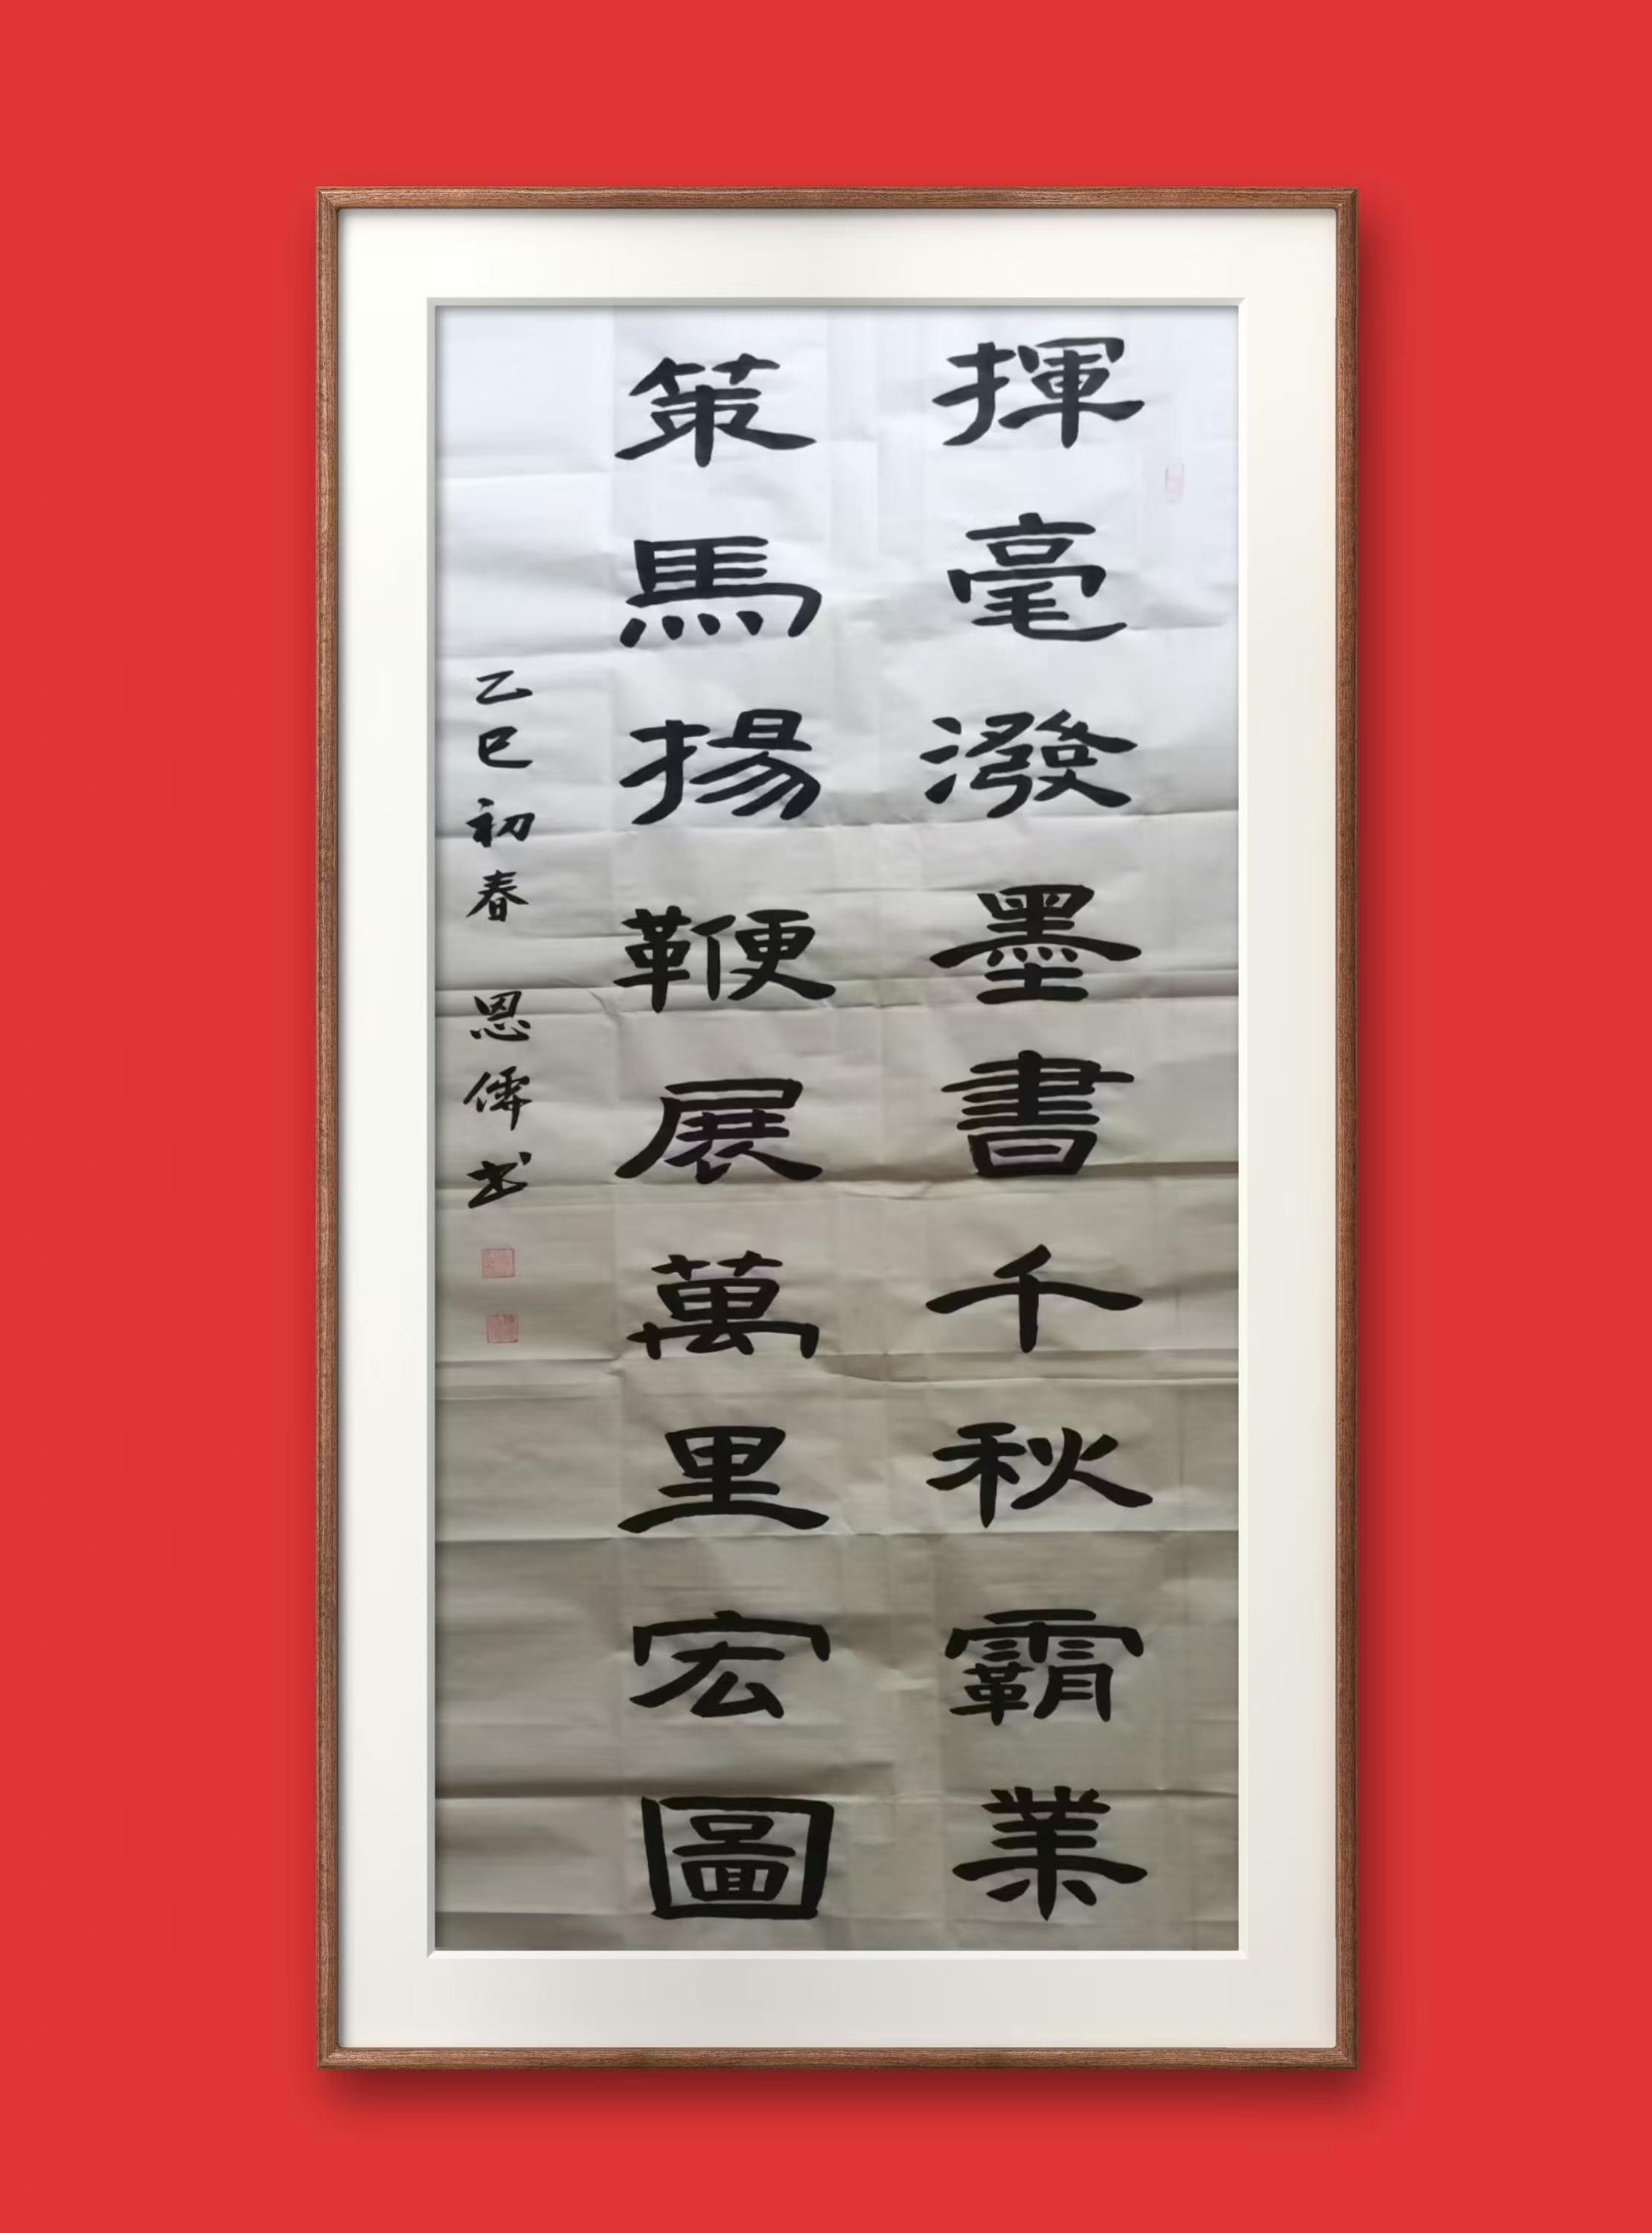 揮毫潑墨書千秋霸業
策馬揚鞭展萬里宏圖
乙巳初春 恩儒书